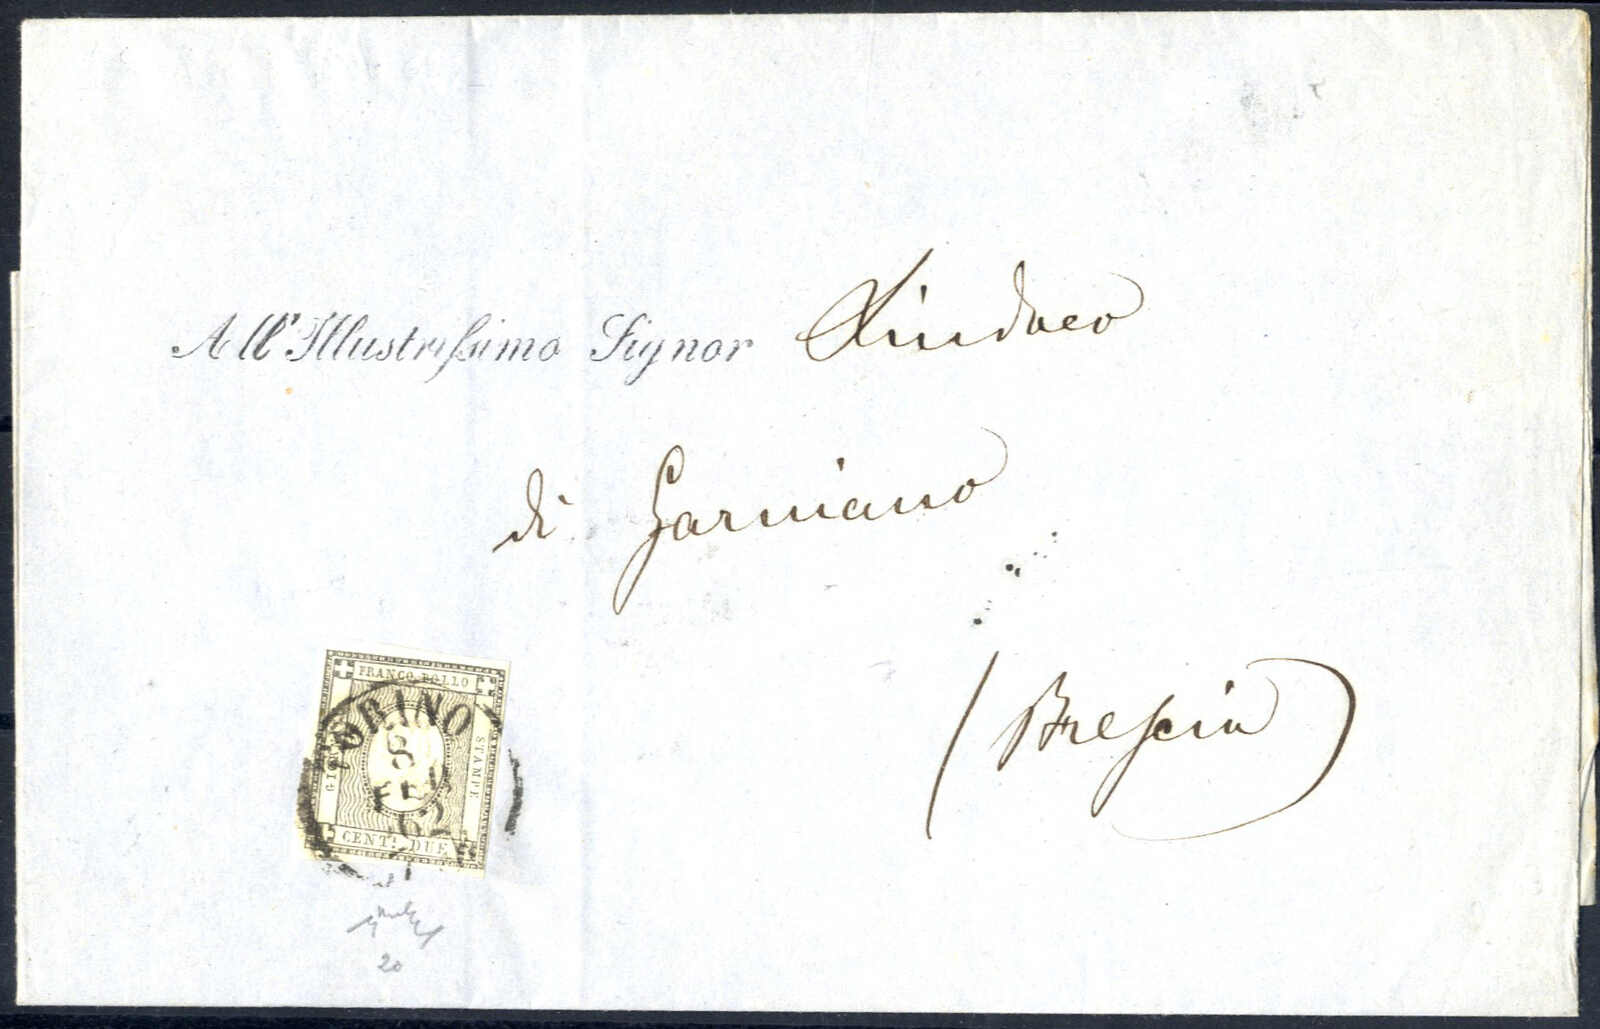 All'Illustrissimo Signor Sindaco
di Garniano
(Brescia)
FRANCO BOLLO
STAMPE
CENT. DUE
TORINO
8
FEB
62
20